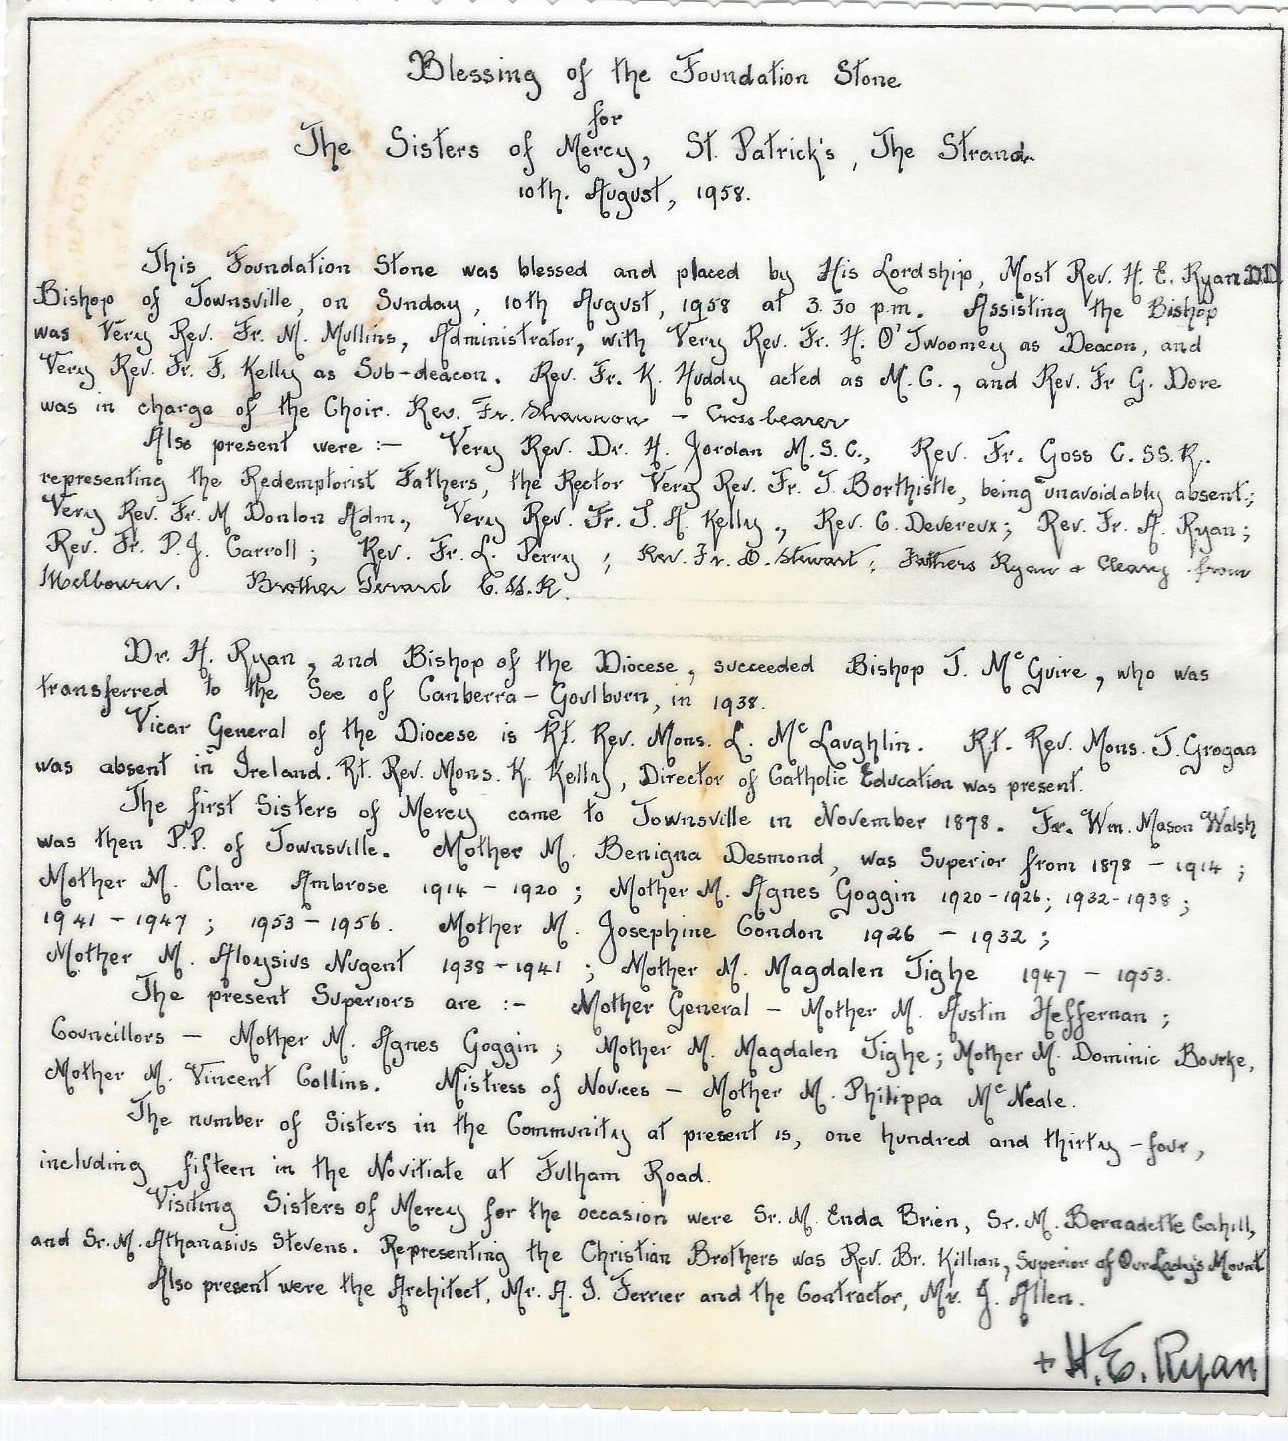 Blessing of the Foundation Stone
for
The Sisters of Mercy, St. Patrick's, The Strand.
10th. August, 1958.
This Foundation Stone was blessed and placed by His Lordship, Most Rev. H. E. Ryan D.D.
Bishop of Townsville, on Sunday, 10th August, 1958 at 3.30 p.m. Assisting the Bishop
was Very Rev. Fr. M. Mullins, Administrator, with Very Rev. Fr. H. O'Twoomey as Deacon, and
Very Rev. Fr. F. Kelly as Sub-deacon. Rev. Fr. K. Huddy acted as M.C., and Rev. Fr G. Dore
was in charge of the Choir. Rev. Fr. Shannon - Cross-bearer
Also present were :- Very Rev. Dr. H. Jordan M.S.C., Rev. Fr. Goss C.SS.R.
representing the Redemptorist Fathers, the Rector Very Rev. Fr. J. Borthistle, being unavoidably absent;
Very Rev. Fr. M Donlon Adm., Very Rev. Fr. J. A. Kelly., Rev. C. Devereux; Rev. Fr. A. Ryan;
Rev. Fr. P.J. Carroll; Rev. Fr. L. Perry; Rev. Fr. D. Stewart; Fathers Ryan + Cleary from
Melbourn. Brother Gerard C.SS.R.
Dr. H. Ryan, 2nd Bishop of the Diocese, succeeded Bishop T. McGuire, who was
transferred to the See of Canberra-Goulburn, in 1938.
Vicar General of the Diocese is Rt. Rev. Mons. L. McLaughlin. Rt. Rev. Mons. J. Grogan
was absent in Ireland. Rt. Rev. Mons. K. Kelly, Director of Catholic Education was present.
The first Sisters of Mercy came to Townsville in November 1878. Fr. Wm. Mason Walsh
was then P.P. of Townsville. Mother M. Benigna Desmond, was Superior from 1878 - 1914;
Mother M. Clare Ambrose 1914 - 1920; Mother M. Agnes Goggin 1920-1926; 1932-1938;
1941 - 1947; 1953 - 1956. Mother M. Josephine Condon 1926 - 1932;
Mother M. Aloysius Nugent 1938 - 1941; Mother M. Magdalen Tighe 1947 - 1953.
The present Superiors are :- Mother General - Mother M. Austin Heffernan;
Councillors - Mother M. Agnes Goggin; Mother M. Magdalen Tighe; Mother M. Dominic Bourke,
Mother M. Vincent Collins. Mistress of Novices - Mother M. Philippa McNeale.
The number of Sisters in the Community at present is, one hundred and thirty-four,
including fifteen in the Novitiate at Fulham Road.
Visiting Sisters of Mercy for the occasion were Sr. M. Enda Brien, Sr. M. Bernadette Cahill,
and Sr. M. Athanasius Stevens. Representing the Christian Brothers was Rev. Br. Killian, Superior of Our Lady's Mount
Also present were the Architect, Mr. A. I. Ferrier and the Contractor, Mr. J. Allen.
+ H. E. Ryan